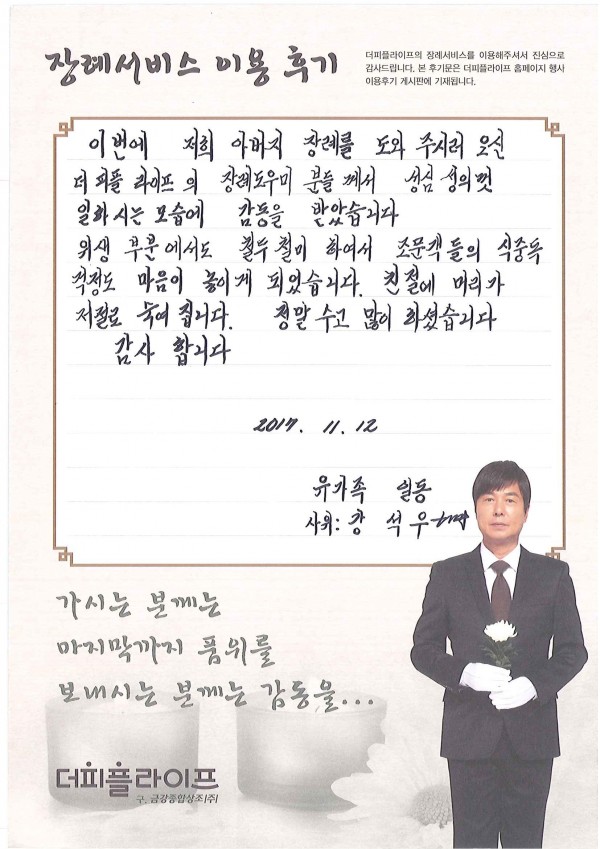 장례서비스 이용 후기
더피플라이프의 장례서비스를 이용해주셔서 진심으로
감사드립니다. 본 후기문은 더피플라이프 홈페이지 행사
이용후기 게시판에 기재됩니다.
이번에 저희 아버지 장례를 도와 주시러 오신
더 피플 라이프 의 장례도우미 분들 께서 성심 성의껏
일하시는 모습에 감동을 받았습니다
위생 부분에서도 철두철미 하여서 조문객들의 식중독
걱정도 마음이 놓이게 되었습니다. 친절에 머리가
저절로 숙여 집니다. 정말 수고 많이 하셨습니다
감사 합니다
2017. 11. 12
유가족 일동
사위: 강 석 우
가시는 분께는
마지막까지 품위를
보내시는 분께는 감동을...
더피플라이프
구. 금강종합상조(주)